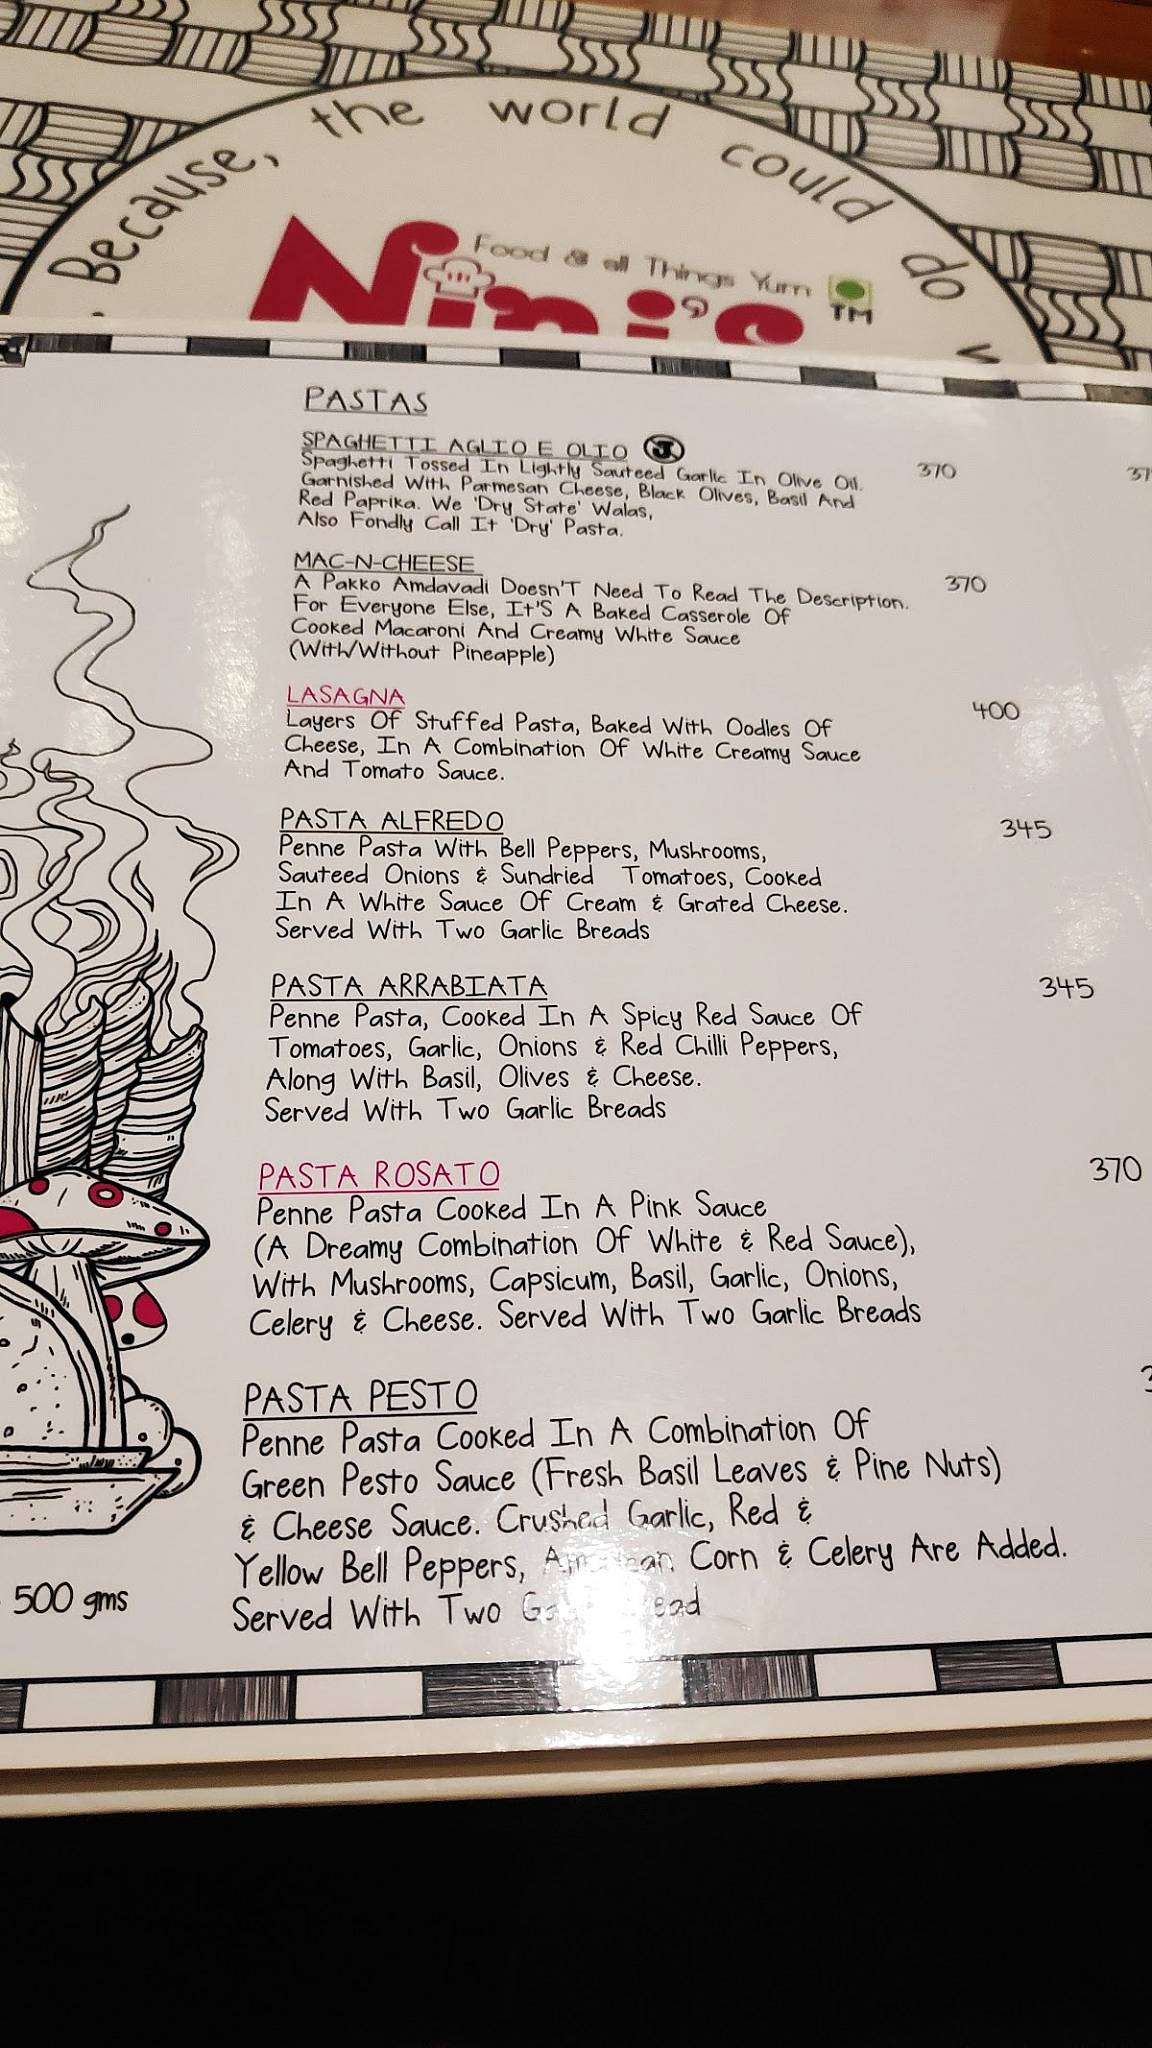 Because, the world could do
Food & all Things Yum
Nini's TM
PASTAS
SPAGHETTI AGLIO E OLIO J 370
Spaghetti Tossed In Lightly Sauteed Garlic In Olive Oil.
Garnished With Parmesan Cheese, Black Olives, Basil And
Red Paprika. We 'Dry State' Walas,
Also Fondly Call It 'Dry' Pasta.
MAC-N-CHEESE 370
A Pakko Amdavadi Doesn'T Need To Read The Description.
For Everyone Else, It'S A Baked Casserole Of
Cooked Macaroni And Creamy White Sauce
(With/Without Pineapple)
LASAGNA 400
Layers Of Stuffed Pasta, Baked With Oodles Of
Cheese, In A Combination Of White Creamy Sauce
And Tomato Sauce.
PASTA ALFREDO 345
Penne Pasta With Bell Peppers, Mushrooms,
Sauteed Onions & Sundried Tomatoes, Cooked
In A White Sauce Of Cream & Grated Cheese.
Served With Two Garlic Breads
PASTA ARRABIATA 345
Penne Pasta, Cooked In A Spicy Red Sauce Of
Tomatoes, Garlic, Onions & Red Chilli Peppers,
Along With Basil, Olives & Cheese.
Served With Two Garlic Breads
PASTA ROSATO 370
Penne Pasta Cooked In A Pink Sauce
(A Dreamy Combination Of White & Red Sauce),
With Mushrooms, Capsicum, Basil, Garlic, Onions,
Celery & Cheese. Served With Two Garlic Breads
PASTA PESTO
Penne Pasta Cooked In A Combination Of
Green Pesto Sauce (Fresh Basil Leaves & Pine Nuts)
& Cheese Sauce. Crushed Garlic, Red &
Yellow Bell Peppers, Corn & Celery Are Added.
Served With Two
500 gms